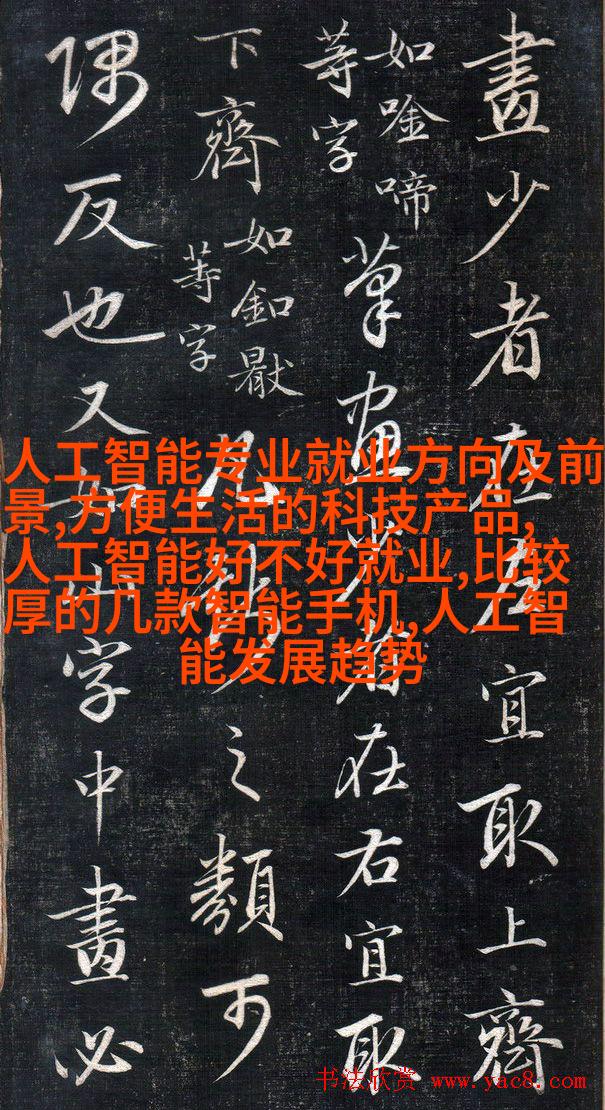 畫少者在左宜取上齊
如唫啼
等字
筆畫少者在右宜取
下齊
如釦
等字
凡之類可
隅反也又如字中畫必
人工智能专业就业方向及前
景,方便生活的科技产品,
人工智能好不好就业,比较
厚的几款智能手机,人工智
能发展趋势
书法欣赏 www.yac8.com